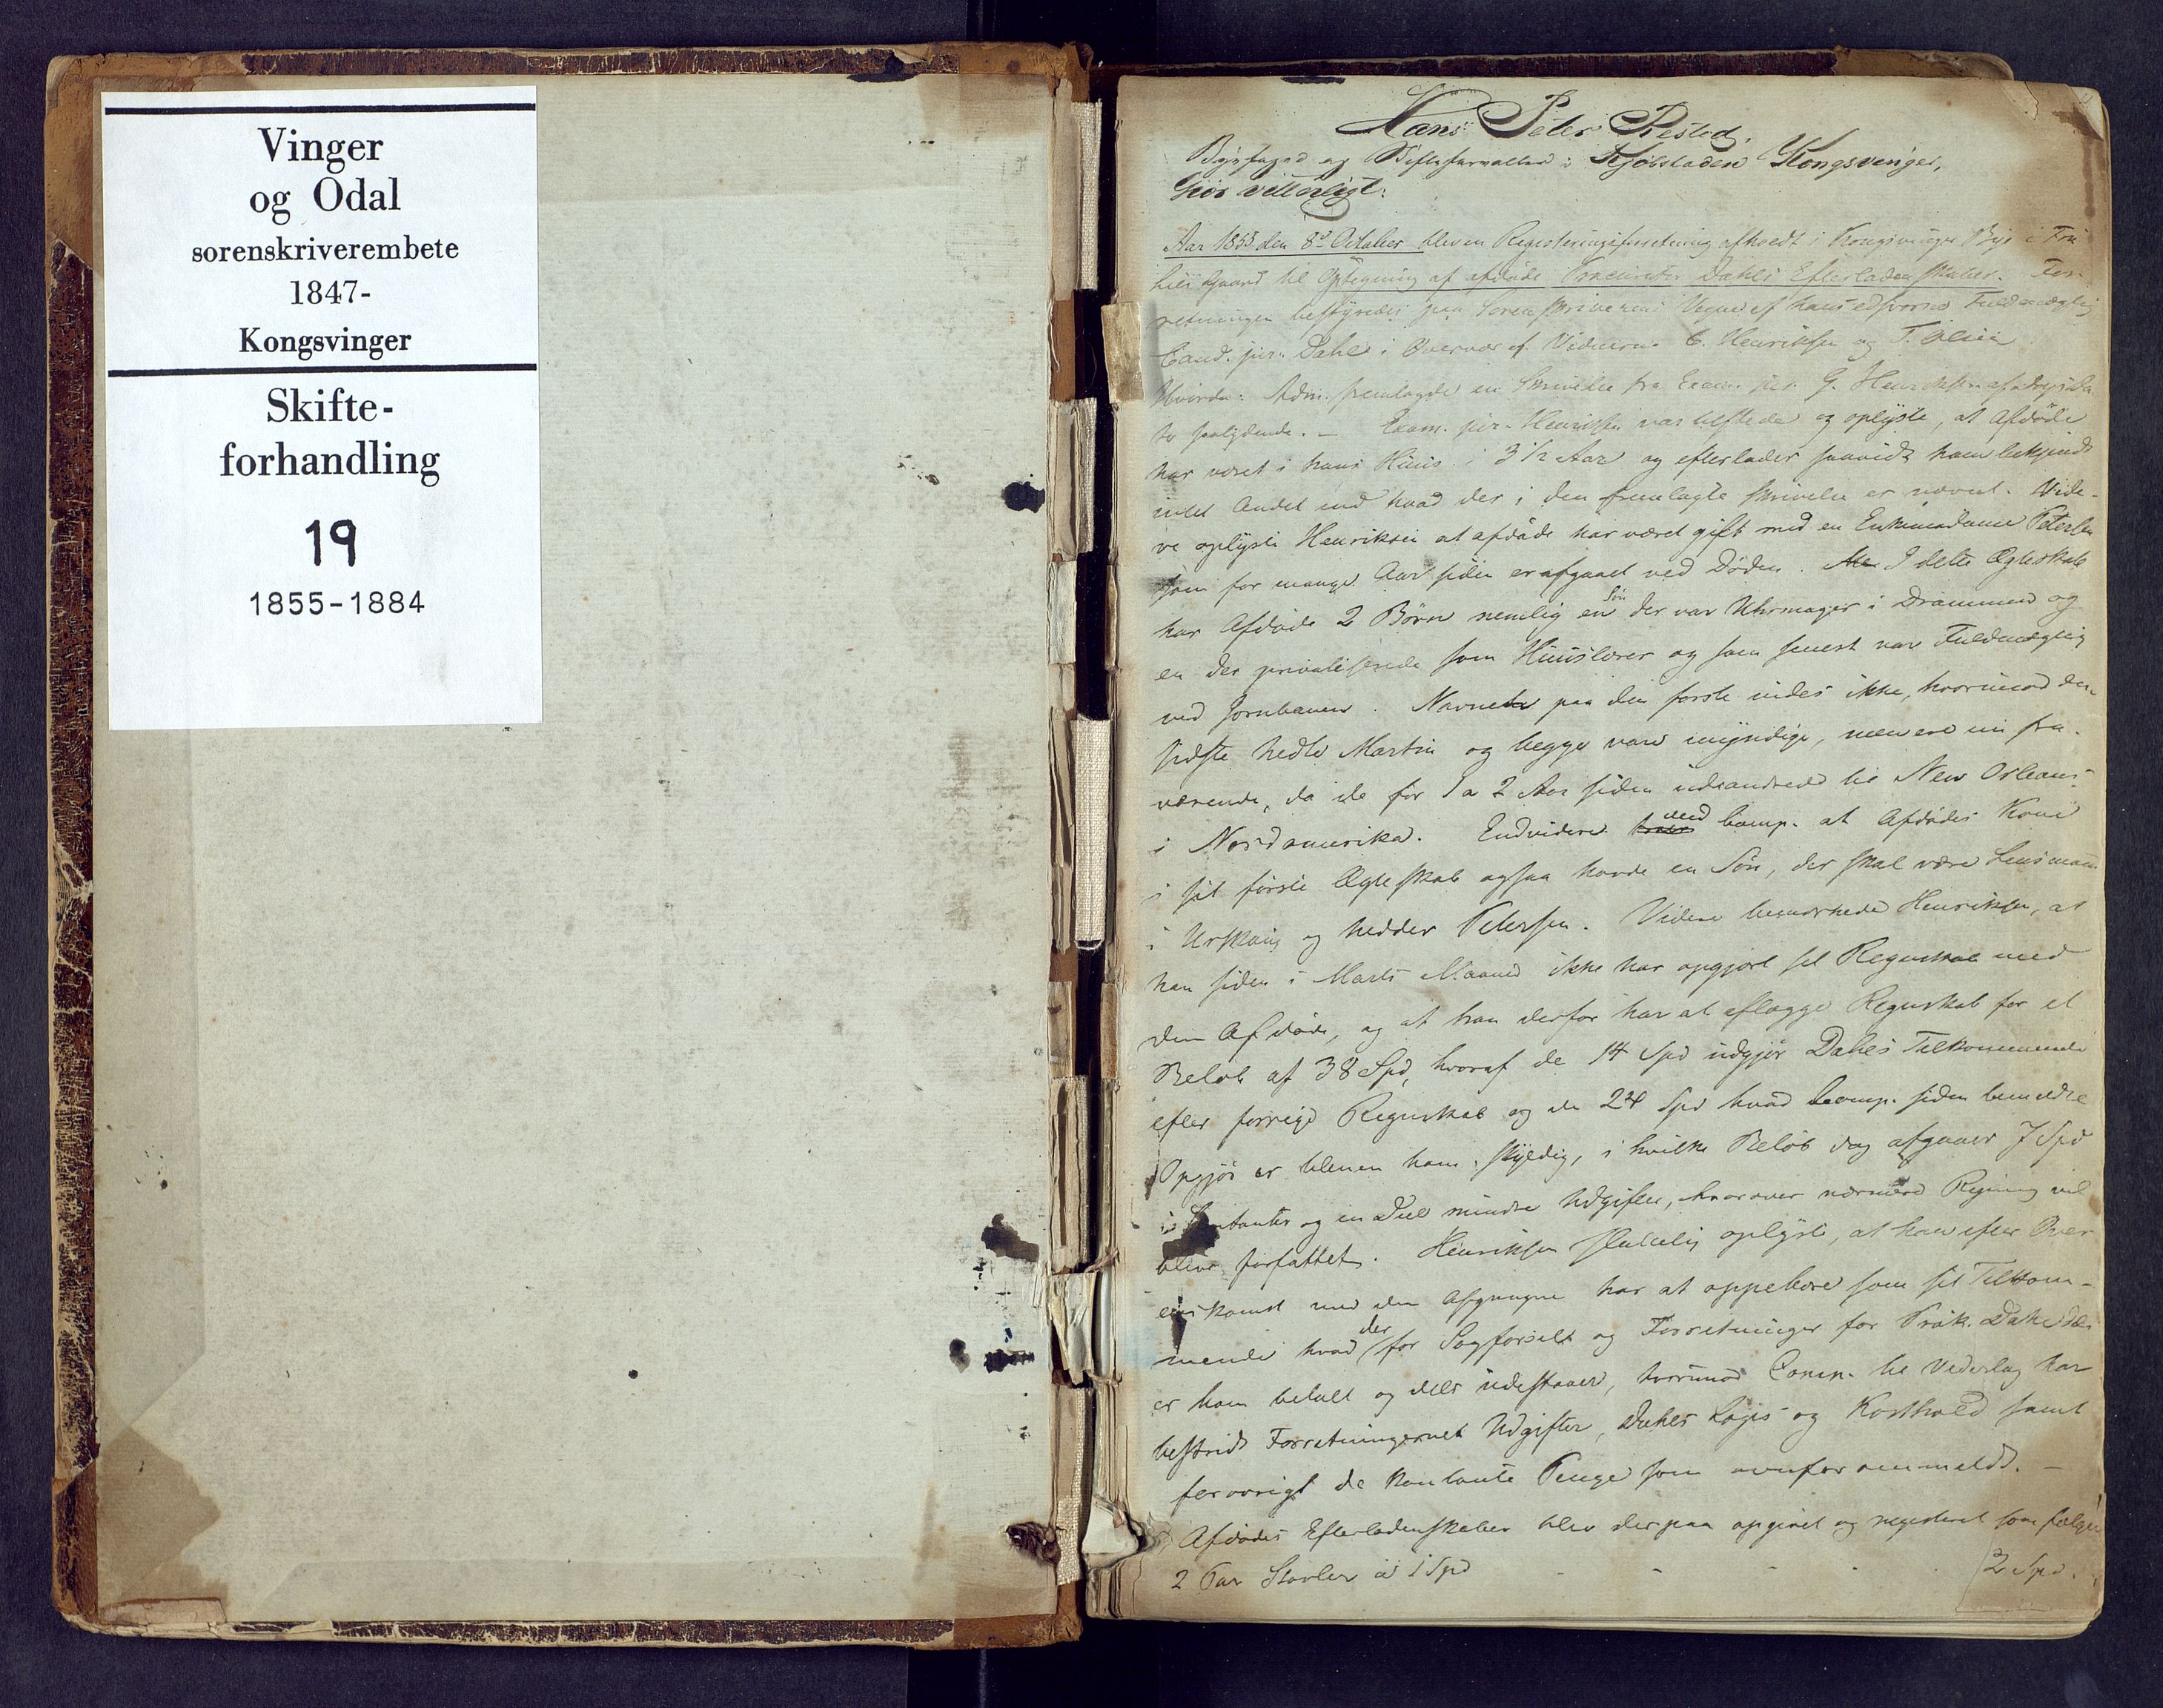 Vinger
og Odal
sorenskriverembete
1847-
Kongsvinger
Skifte-
forhandling
19
1855-1884
Hans Peter Prested,
Byefoged og Skifteforvalter i Kjøbstaden Kongsvinger,
Gjør vitterligt:
Aar 1855 den 8de October blev en Registreringsforretning afholdt i Kongsvinger Bye i
Gaard til Optegning af afdøde Procurator Dahls Efterladenskaber. For-
retningen bestyredes paa Sorenskriverens Vegne af hans edsvorne Fuldmægtig
Cand. jur. Dahl i Overvær af Vidnerne C. Henriksen og T. Olsen
Hvorda: Adm. fremlagde en Skrivelse fra Exam. jur. G. Henriksen af
saalydende. – Exam. jur. Henriksen var tilstede og oplyste, at Afdøde
har været i hans Huus i 3 1/2 Aar og efterlader saavidt ham bekjendt
intet Andet end hvad der i den fremlagte Skrivelse er nævnt. Vide-
re oplyste Henriksen at afdøde har været gift med en Enkemadame Petersen
som for mange Aar siden er afgaaet ved Døden. I dette Ægteskab
har Afdøde 2 Børn nemlig en Søn der var Uhrmager i Drammen og
en der privatiserede som Huuslærer og som senest var Fuldmægtig
ved Jernbanen. Navnet paa den første vides ikke, hvorimod den
sidste hedte Martin og begge vare myndige, men ere nu fra-
værende, da de for 1 a 2 Aar siden udvandrede til New Orleans
i Nordamerika. Endvidere Comp. at Afdødes Kone
i sit første Ægteskab ogsaa havde en Søn, der skal være Lensmand
i Urskoug og hedder Petersen. Videre bemærkede Henriksen, at
han siden i Marts Maaned ikke har opgjort sit Regnskab med
den Afdøde, og at han derfor har at aflægge Regnskab for et
Beløb af 38 Spd, hvoraf de 14 Spd udgjør Dahls Tilkommende
efter forrige Regnskab og de 24 Spd hvad Comp. siden bemeldte
Opgjør er bleven ham skyldig, i hvilke Beløb dog afgaaer 7 Spd
i Contanter og en Deel mindre Udgifter, hvorover nærmere Regning vil
blive forfattet. Henriksen sluttelig oplyste, at han efter Over-
eenskomst med den Afgangne har at oppebære som sit Tilkom-
mende hvad der for Sagførsel og Forretninger for Prok. Dahl dels
er ham betalt og dels udestaaer, hvorimod Comp. til Vederlag har
bestridt Forretningernes Udgifter, Dahls Logis og Kosthold samt
forøvrigt de kontante Penge som ovenfor ommeldt. –
Afdødes Efterladenskaber blev derpaa opgivet og registeret som følger
2 Par Støvler a 1 Spd - - - 2 Spd.